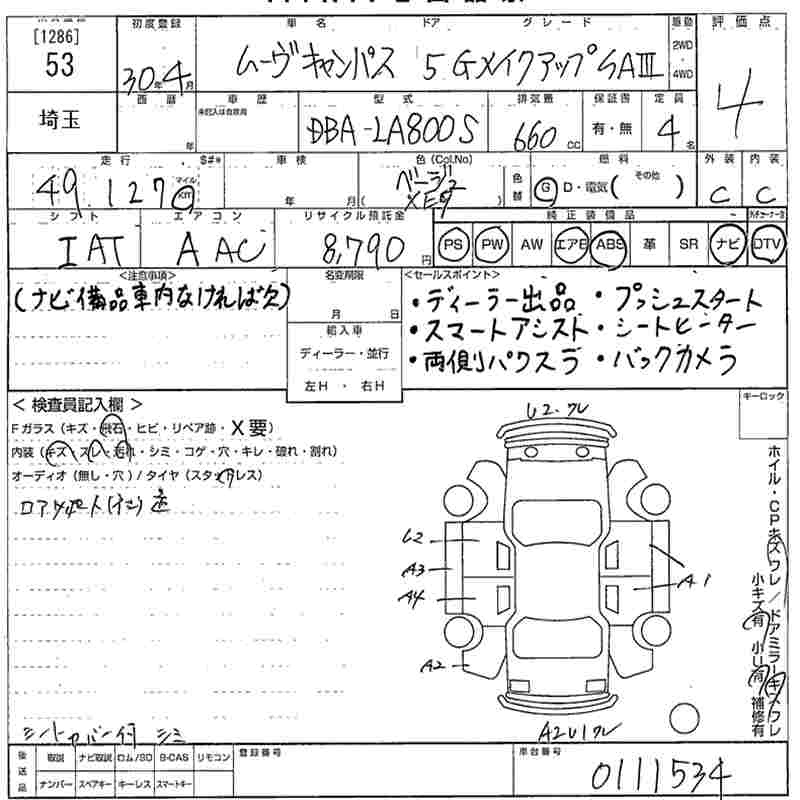 [1286]
53
初度登録 車名 ドア グレード 駆動 評価点
30年4月 ムーヴキャンバス 5 GメイクアップSAⅢ 2WD・4WD 4
埼玉 西暦 年 車歴 型式 排気量 保証書 定員
DBA-LA800S 660cc 有・無 4名
走行 $#* 車検 色(Col.No) 色替 燃料 外装 内装
49,127 マイル KM 年 月 ベージュ G D・電気(その他) C C
シフト エアコン リサイクル預託金 純正装備品
IAT AAC 8,790円 PS PW AW エアB ABS 革 SR ナビ DTV
<注意事項> 名変期限 <セールスポイント>
(ナビ備品車内なければ欠) 月 日 ・ディーラー出品 ・プッシュスタート
輸入車 ・スマートアシスト ・シートヒーター
ディーラー・並行 ・両側パワスラ ・バックカメラ
左H ・ 右H
<検査員記入欄> キーロック
Fガラス(キズ・飛石・ヒビ・リペア跡・X要)
内装(キズ・スレ・汚れ・シミ・コゲ・穴・キレ・破れ・割れ)
オーディオ(無し・穴)/タイヤ(スタッドレス)
U2・ワレ
U2
A3
A4
A2
A1
A2U1ワレ
ホイル・CPキズワレ/ドアミラーキズワレ
小キズ有 小U有 補修有
シートカバー付 シミ
後送品 取説 ナビ取説 ロム/SD B-CAS リモコン 登録番号 車台番号
ナンバー スペアキー キーレス スマートキー 0111534